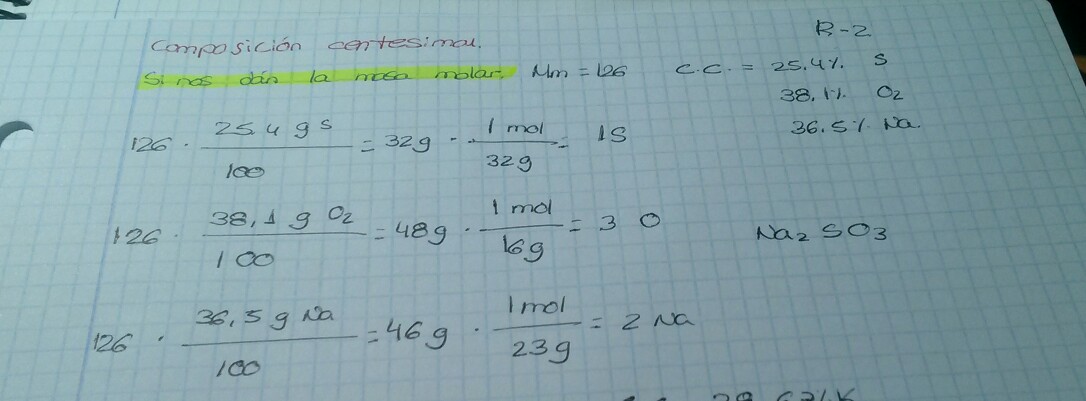 B-2
Composición centesimal.
Si nos dán la masa molar. Mm = 126 C.C. = 25.4% S
38,1% O2
36.5% Na.
126 · 25.4 g S / 100 = 32g · 1 mol / 32g = 1S
126 · 38,1 g O2 / 100 = 48g · 1 mol / 16g = 3 O
Na2SO3
126 · 36,5 g Na / 100 = 46g · 1 mol / 23g = 2 Na